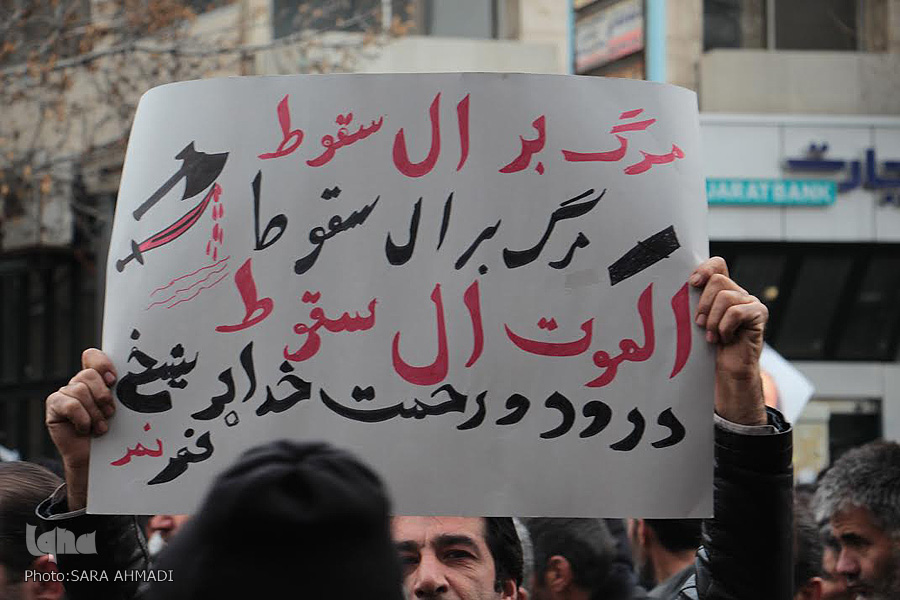 مرگ بر ال سقوط
مرگ بر ال سقوط
الموت ال سقوط
درود و رحمت خدا بر شیخ
نمر نمر
تجارت
JARAT BANK
iqna
Photo:SARA AHMADI